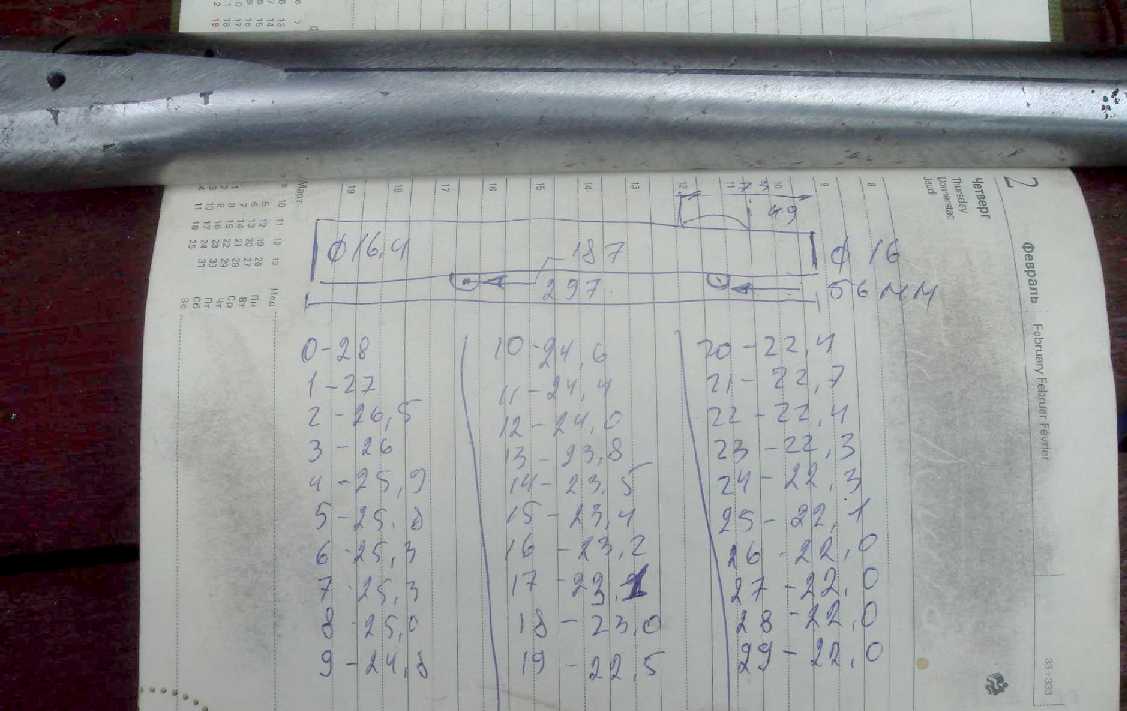 49
ϕ16,4 187 ϕ 16
297 56 мм
0-28
1-27
2-26,5
3-26
4-25,9
5-25,8
6-25,3
7-25,3
8-25,0
9-24,8
10-24,6
11-24,4
12-24,0
13-23,8
14-23,5
15-23,4
16-23,2
17-23,1
18-23,0
19-22,5
20-22,4
21-22,7
22-22,4
23-22,3
24-22,3
25-22,1
26-22,0
27-22,0
28-22,0
29-22,0
2
Четверг
Thursday
Donnerstag
Jeudi
Февраль February Februar Février
33 - 333
8
9
10
11
12
13
14
15
16
17
18
19
Март